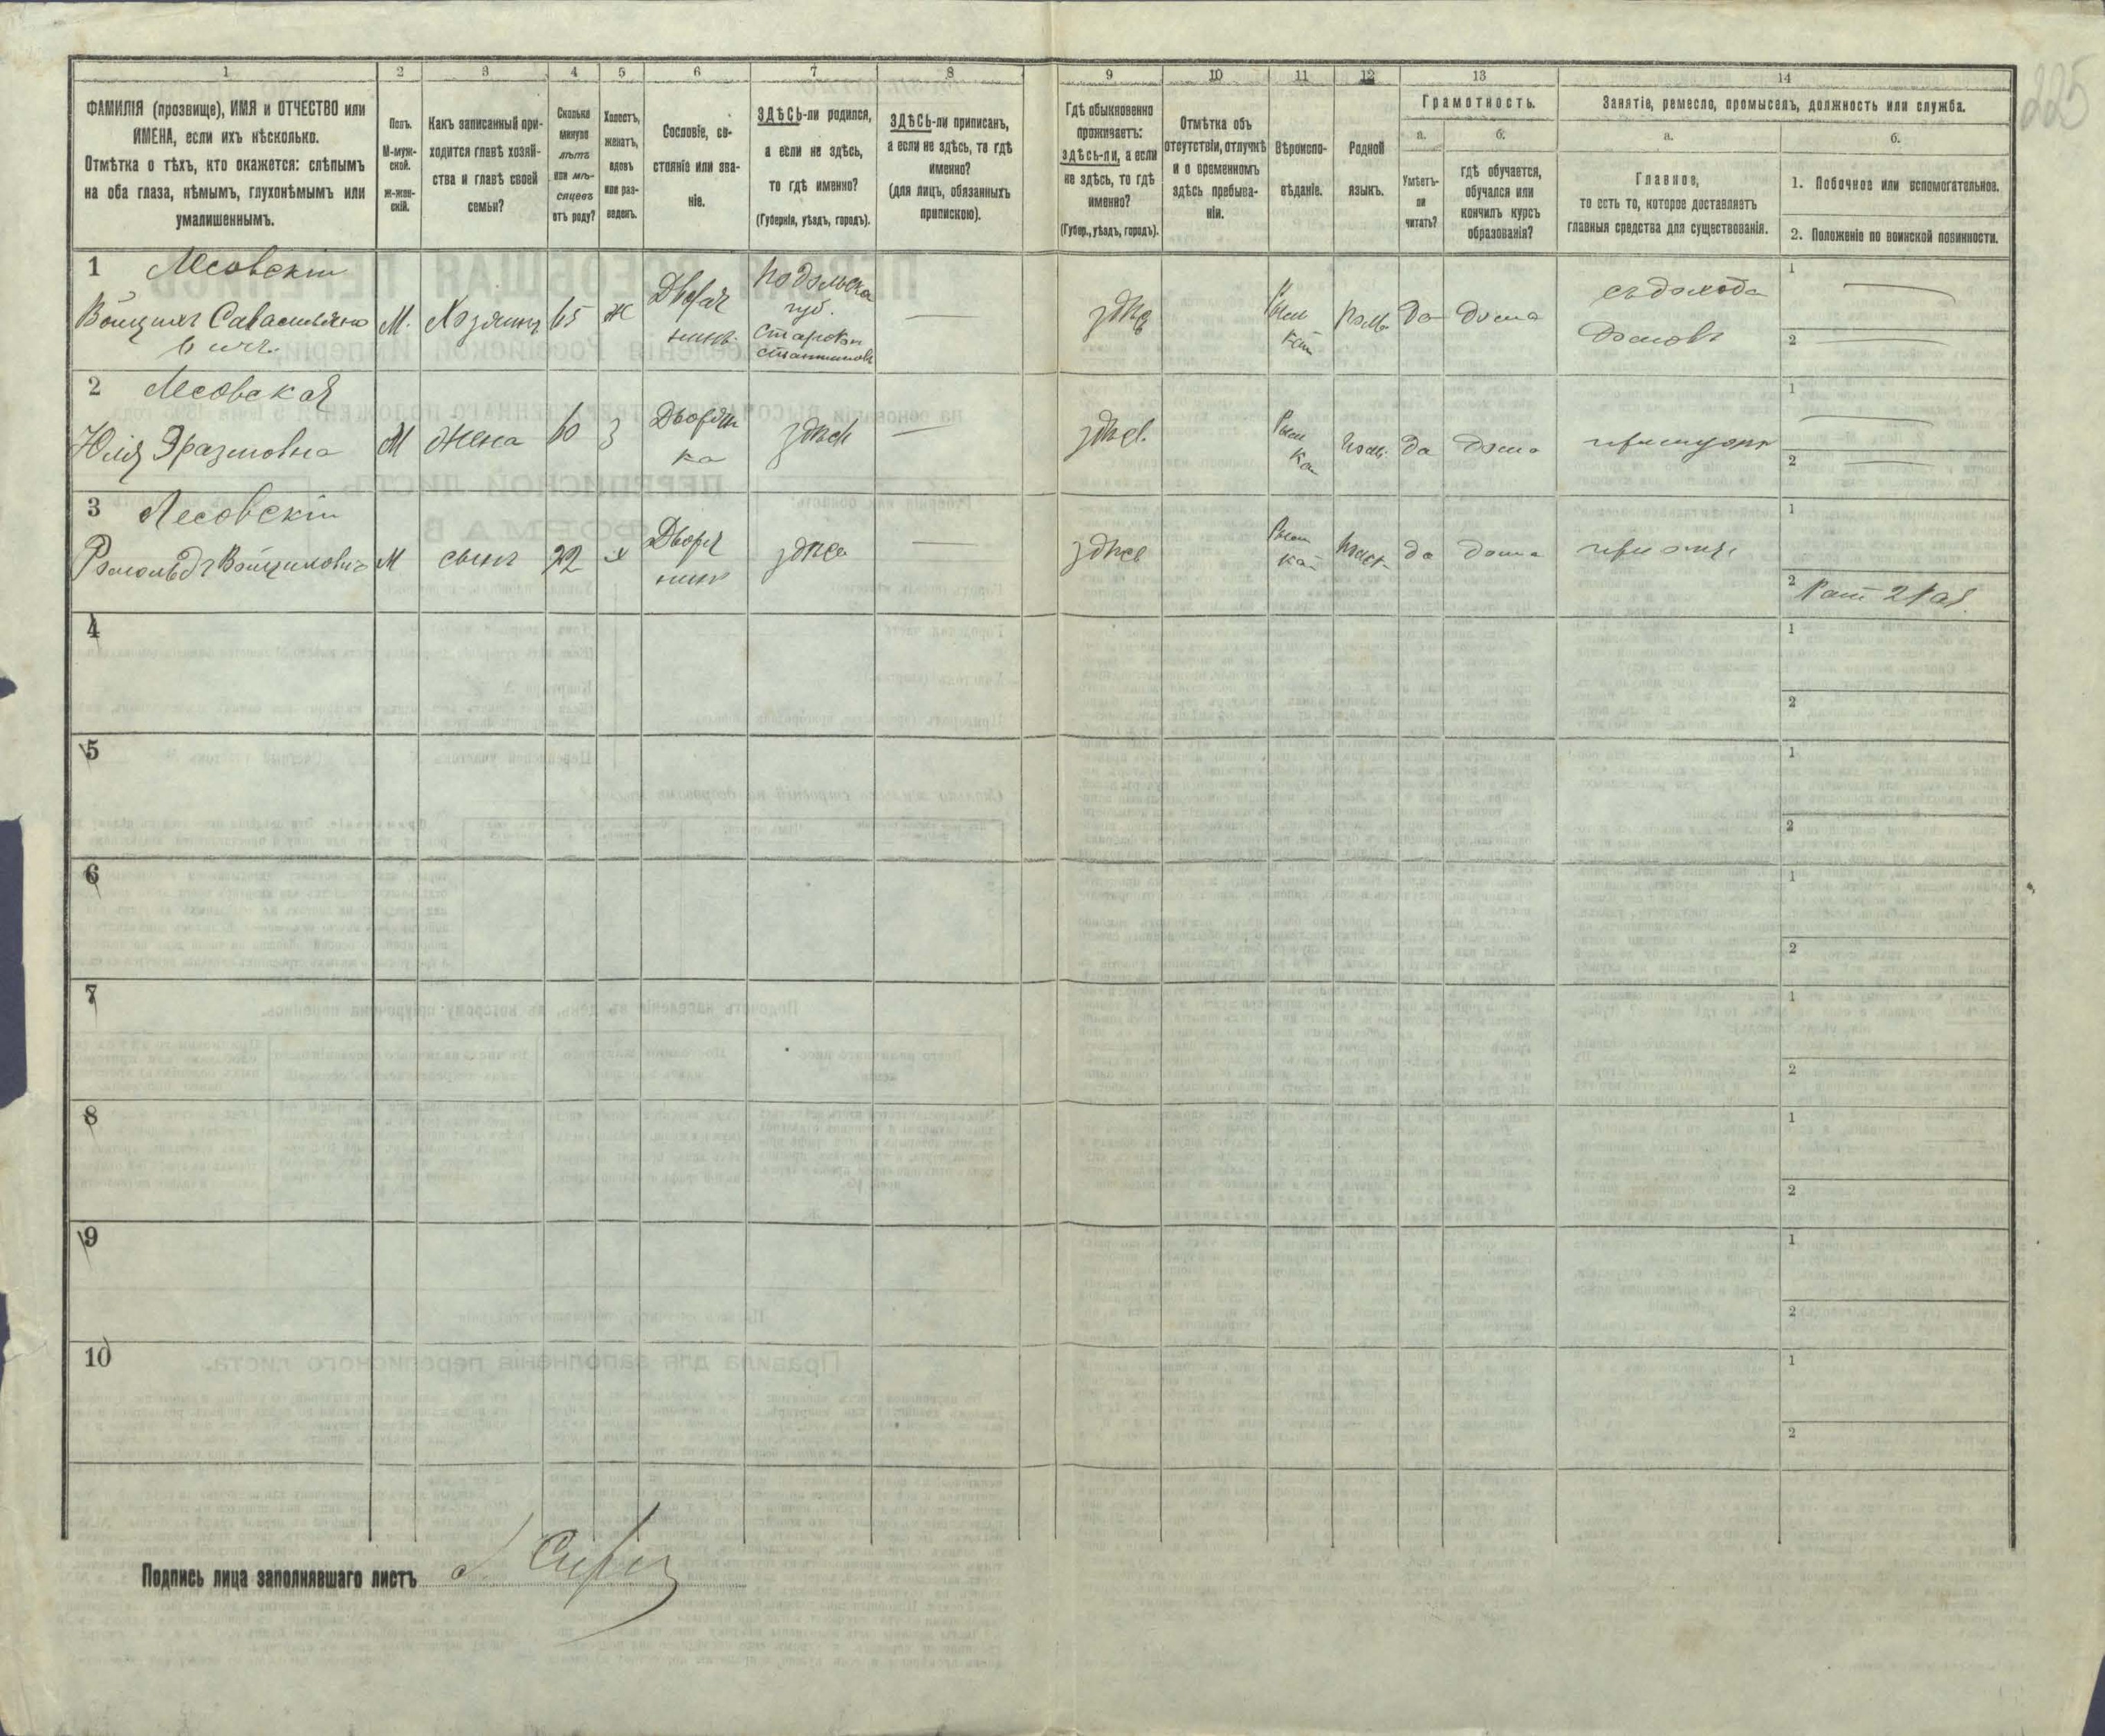 225
1
2
3
4
5
6
7
8
9
10
11
12
13
14
ФАМИЛІЯ (прозвище), ИМЯ и ОТЧЕСТВО или
ИМЕНА, если ихъ нѣсколько.
Отмѣтка о тѣхъ, кто окажется: слѣпымъ
на оба глаза, нѣмымъ, глухонѣмымъ или
умалишеннымъ.
Полъ.
М-муж-
ской.
Ж-жен-
скій.
Какъ записанный при-
ходится главѣ хозяй-
ства и главѣ своей
семьи?
Сколько
минуло
лѣтъ
или мѣ-
сяцевъ
отъ роду?
Холостъ,
женатъ,
вдовъ
или раз-
веденъ.
Сословіе, со-
стояніе или зва-
ніе.
ЗДѢСЬ-ли родился,
а если не здѣсь,
то гдѣ именно?
(Губернія, уѣздъ, городъ).
ЗДѢСЬ-ли приписанъ,
а если не здѣсь, то гдѣ
именно?
(для лицъ, обязанныхъ
припискою).
Гдѣ обыкновенно
проживаетъ:
здѣсь-ли, а если
не здѣсь, то гдѣ
именно?
(Губер., уѣздъ, городъ).
Отмѣтка объ
отсутствіи, отлучкѣ
и о временномъ
здѣсь пребыва-
ніи.
Вѣроиспо-
вѣданіе.
Родной
языкъ.
Грамотность.
а.
Умѣетъ-
ли
читать?
б.
гдѣ обучается,
обучался или
кончилъ курсъ
образованія?
Занятіе, ремесло, промыселъ, должность или служба.
а.
Главное,
то есть то, которое доставляетъ
главныя средства для существованія.
б.
1. Побочное или вспомогательное.
2. Положеніе по воинской повинности.
1 Лесовскій
Войцихъ
М. Хозяинъ 65 ж Дворя
нинъ
Подольска
губ.
—
здѣсь
Рим
кат
поль да дома
съ дохода
домовъ
1 —
2 —
2 Лесовская
Юлія Эразмовна
М жена 60 З Дворян
ка
здѣсь
—
здѣсь
Рим
ка
поль. да дома
при мужѣ
1 —
2 —
3 Лесовскій
Ромольдъ Войциховичъ
М сынъ 22 х Дворя
нинъ
здѣсь
—
здѣсь
Рим
ка
польс да дома
при отцѣ
1
2 Рат 2 раз.
4
1
2
5
1
2
6
1
2
7
1
2
8
1
2
9
1
2
10
1
2
Подпись лица заполнявшаго листъ